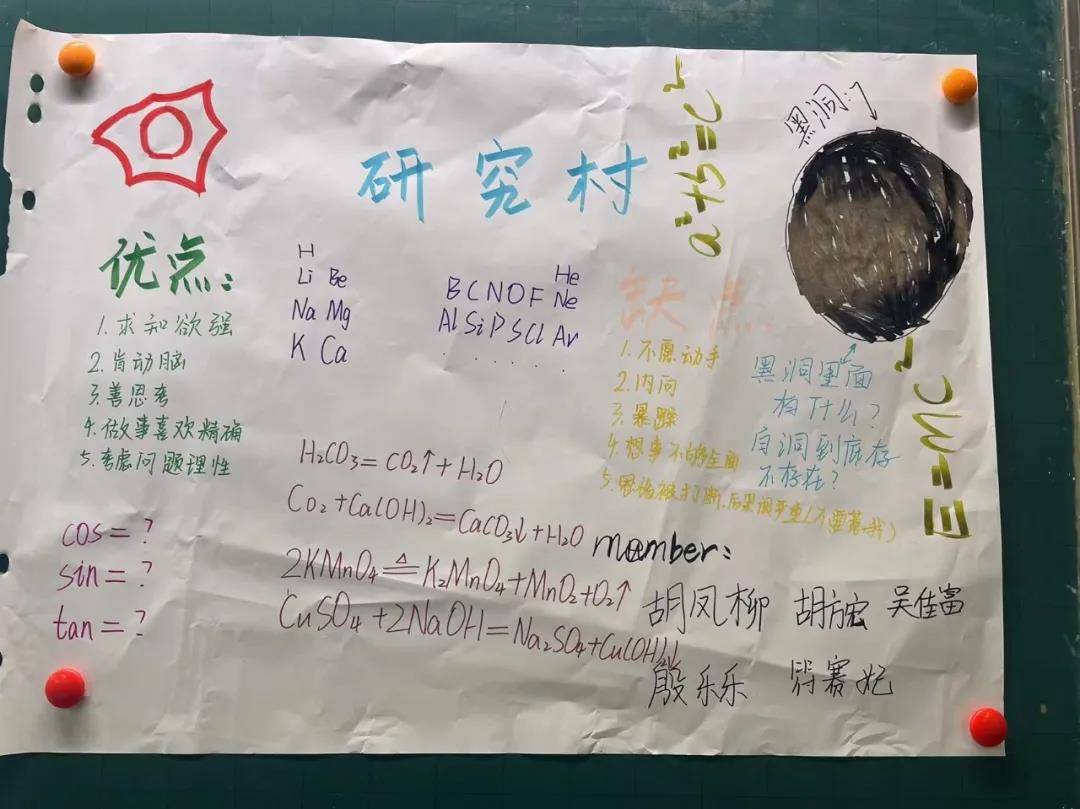 研究村
a²+b²=c²
黑洞:
优点:
1.求知欲强
2.肯动脑
3.善思考
4.做事喜欢精确
5.考虑问题理性
H
He
Li Be
B C N O F Ne
Na Mg
Al Si P S Cl Ar
K Ca
. . . . . .
缺点:
1.不愿动手
2.内向
3.暴躁
4.想事不够全面
5.思绪被打断,后果很严重(不要惹我)
黑洞里面
有什么?
白洞到底存
不存在?
E=MC²
H₂CO₃=CO₂↑+H₂O
Co₂+Ca(OH)₂=CaCO₃↓+H₂O
2KMnO₄≜K₂MnO₄+MnO₂+O₂↑
CuSO₄+2NaOH=Na₂SO₄+Cu(OH)₂↓
cos=?
sin=?
tan=?
member:
胡凤柳 胡方宏 吴佳富
殷乐乐 赛妃